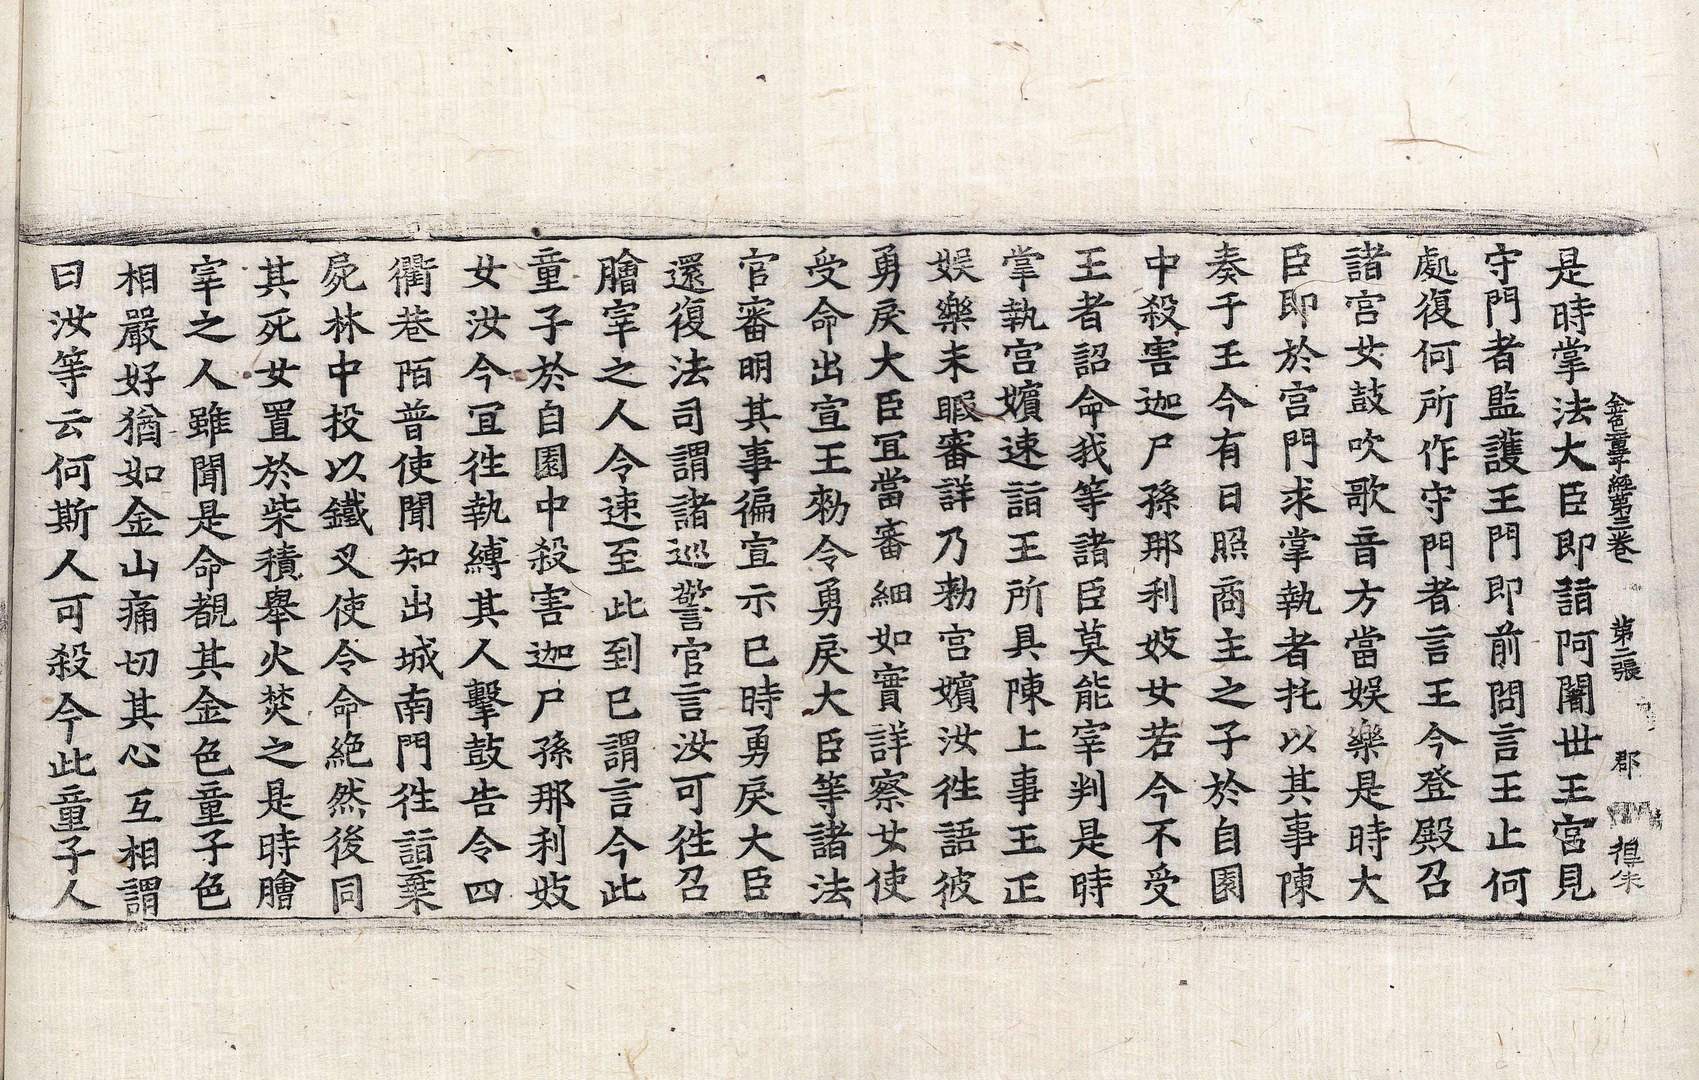 金色童子經第三卷 第二張 郡
是時掌法大臣即詣阿闍世王宮見
守門者監護王門即前問言王止何
處復何所作守門者言王今登殿召
諸宮女鼓吹歌音方當娛樂是時大
臣即於宮門求掌執者托以其事陳
奏于王今有日照商主之子於自園
中殺害迦尸孫那利妓女若今不受
王者詔命我等諸臣莫能宰判是時
掌執宮嬪速詣王所具陳上事王正
娛樂未暇審詳乃勑宮嬪汝往語彼
勇戾大臣冝當審細如實詳察女使
受命出宣王勑令勇戾大臣等諸法
官審明其事徧宣示已時勇戾大臣
還復法司謂諸巡警官言汝可往召
膾宰之人令速至此到已謂言今此
童子於自園中殺害迦尸孫那利妓
女汝今冝往執縛其人擊鼓告令四
衢巷陌普使聞知出城南門往詣棄
屍林中投以鐵叉使令命絕然後同
其死女置於柴積舉火焚之是時膾
宰之人雖聞是命覩其金色童子色
相嚴好猶如金山痛切其心互相謂
曰汝等云何斯人可殺今此童子人